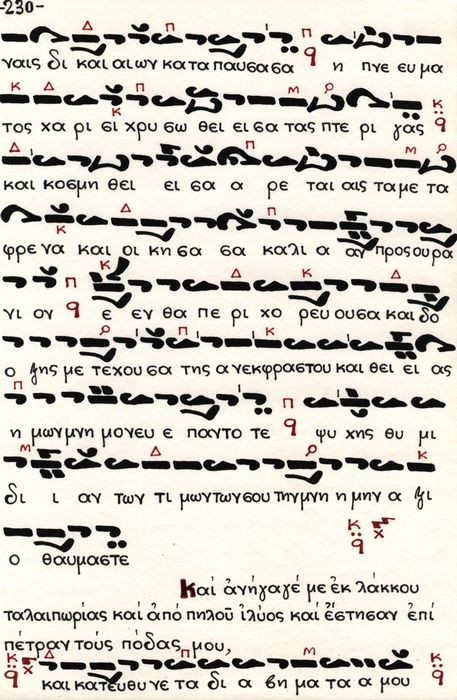 -230-
γαις δι και αι ων κα τα παυσασα η πνε ευ μα
τος χα ρι σι χρυ σω θει ει σα τας πτε ρι γας
και κοσμη θει ει σα α ρε ται αις τα με τα
φρε να και οι κη σα σα κα λι α αν προς ου ρα
νι ον ε εν θα πε ρι χο ρευ ου σα και δο
ο ξης με τε χου σα της α νεκφραστου και θει ει ας
η μων μνη μο νευ ε παν το τε ψυ χης θυ μι
δι ι αν των τι μων των σου την μνη η μην α ξι
ο θαυμαστε
Καὶ ἀνήγαγέ με ἐκ λάκκου
ταλαιπωρίας καὶ ἀπὸ πηλοῦ ἰλύος καὶ ἔστησαν ἐπὶ
πέτραν τοὺς πόδας μου,
και κατευθυνε τα δι α βη μα τα α μου